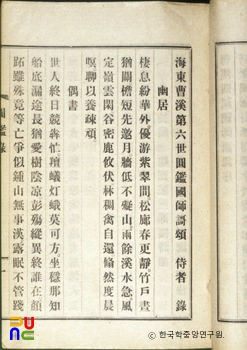 海東曹溪第六世圓鑑國師謌頌　侍者　錄
幽居
棲息紛華外優游紫翠間松廊春更靜竹戶晝
猶關檐短先邀月牆低不礙山雨餘溪水急風
定嶺雲閑谷密鹿攸伏林稠禽自還翛然度晨
暝聊以養疎頑
偶書
世人終日競犇忙羶蟻灯蛾莫可方坐穩那知
船底漏途長猶愛樹陰凉彭殤縱異終誰在顔
跖雖殊竟等亡爭似鍾山無事漢露眠不管踐
圓鑑錄
한국학중앙연구원